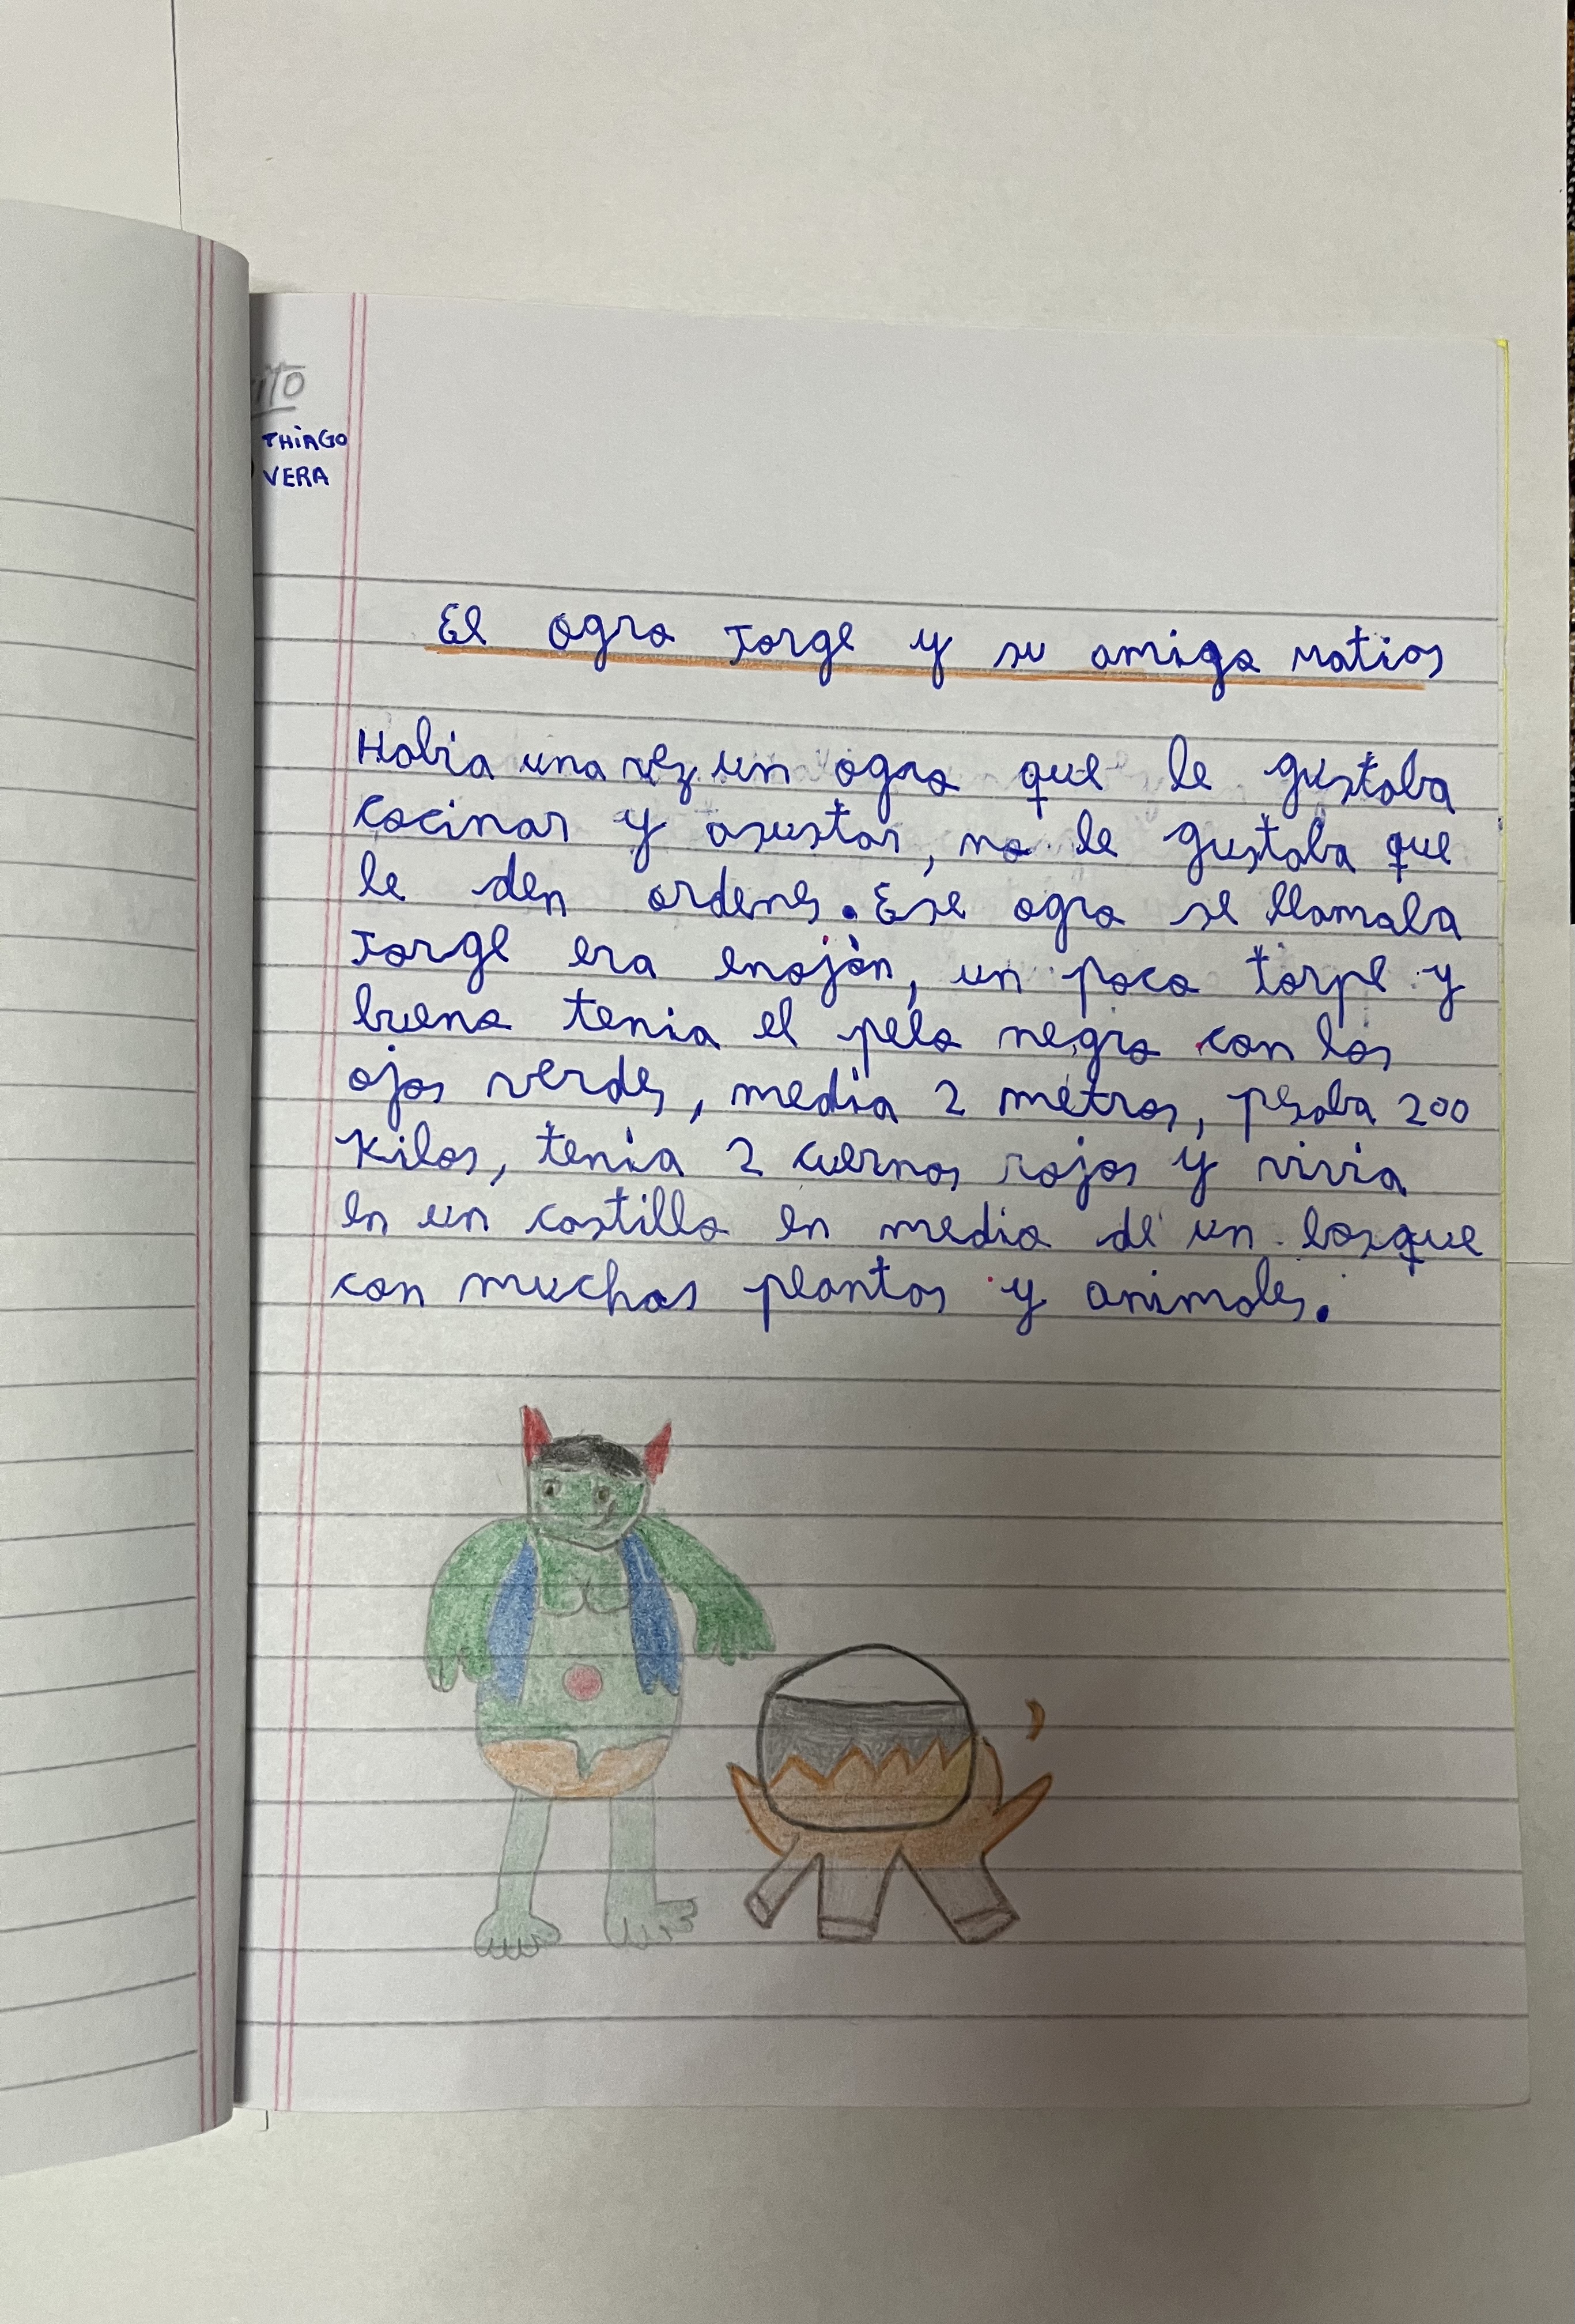 THIAGO
VERA
El ogro Jorge y su amigo Matias
Habia una vez un ogro que le gustaba
cocinar y asustar, no le gustaba que
le den ordenes. Ese ogro se llamaba
Jorge era enojón, un poco torpe y
bueno tenia el pelo negro con los
ojos verdes, media 2 metros, pesaba 200
Kilos, tenia 2 cuernos rojos y vivia
en un castillo en medio de un bosque
con muchas plantas y animales.